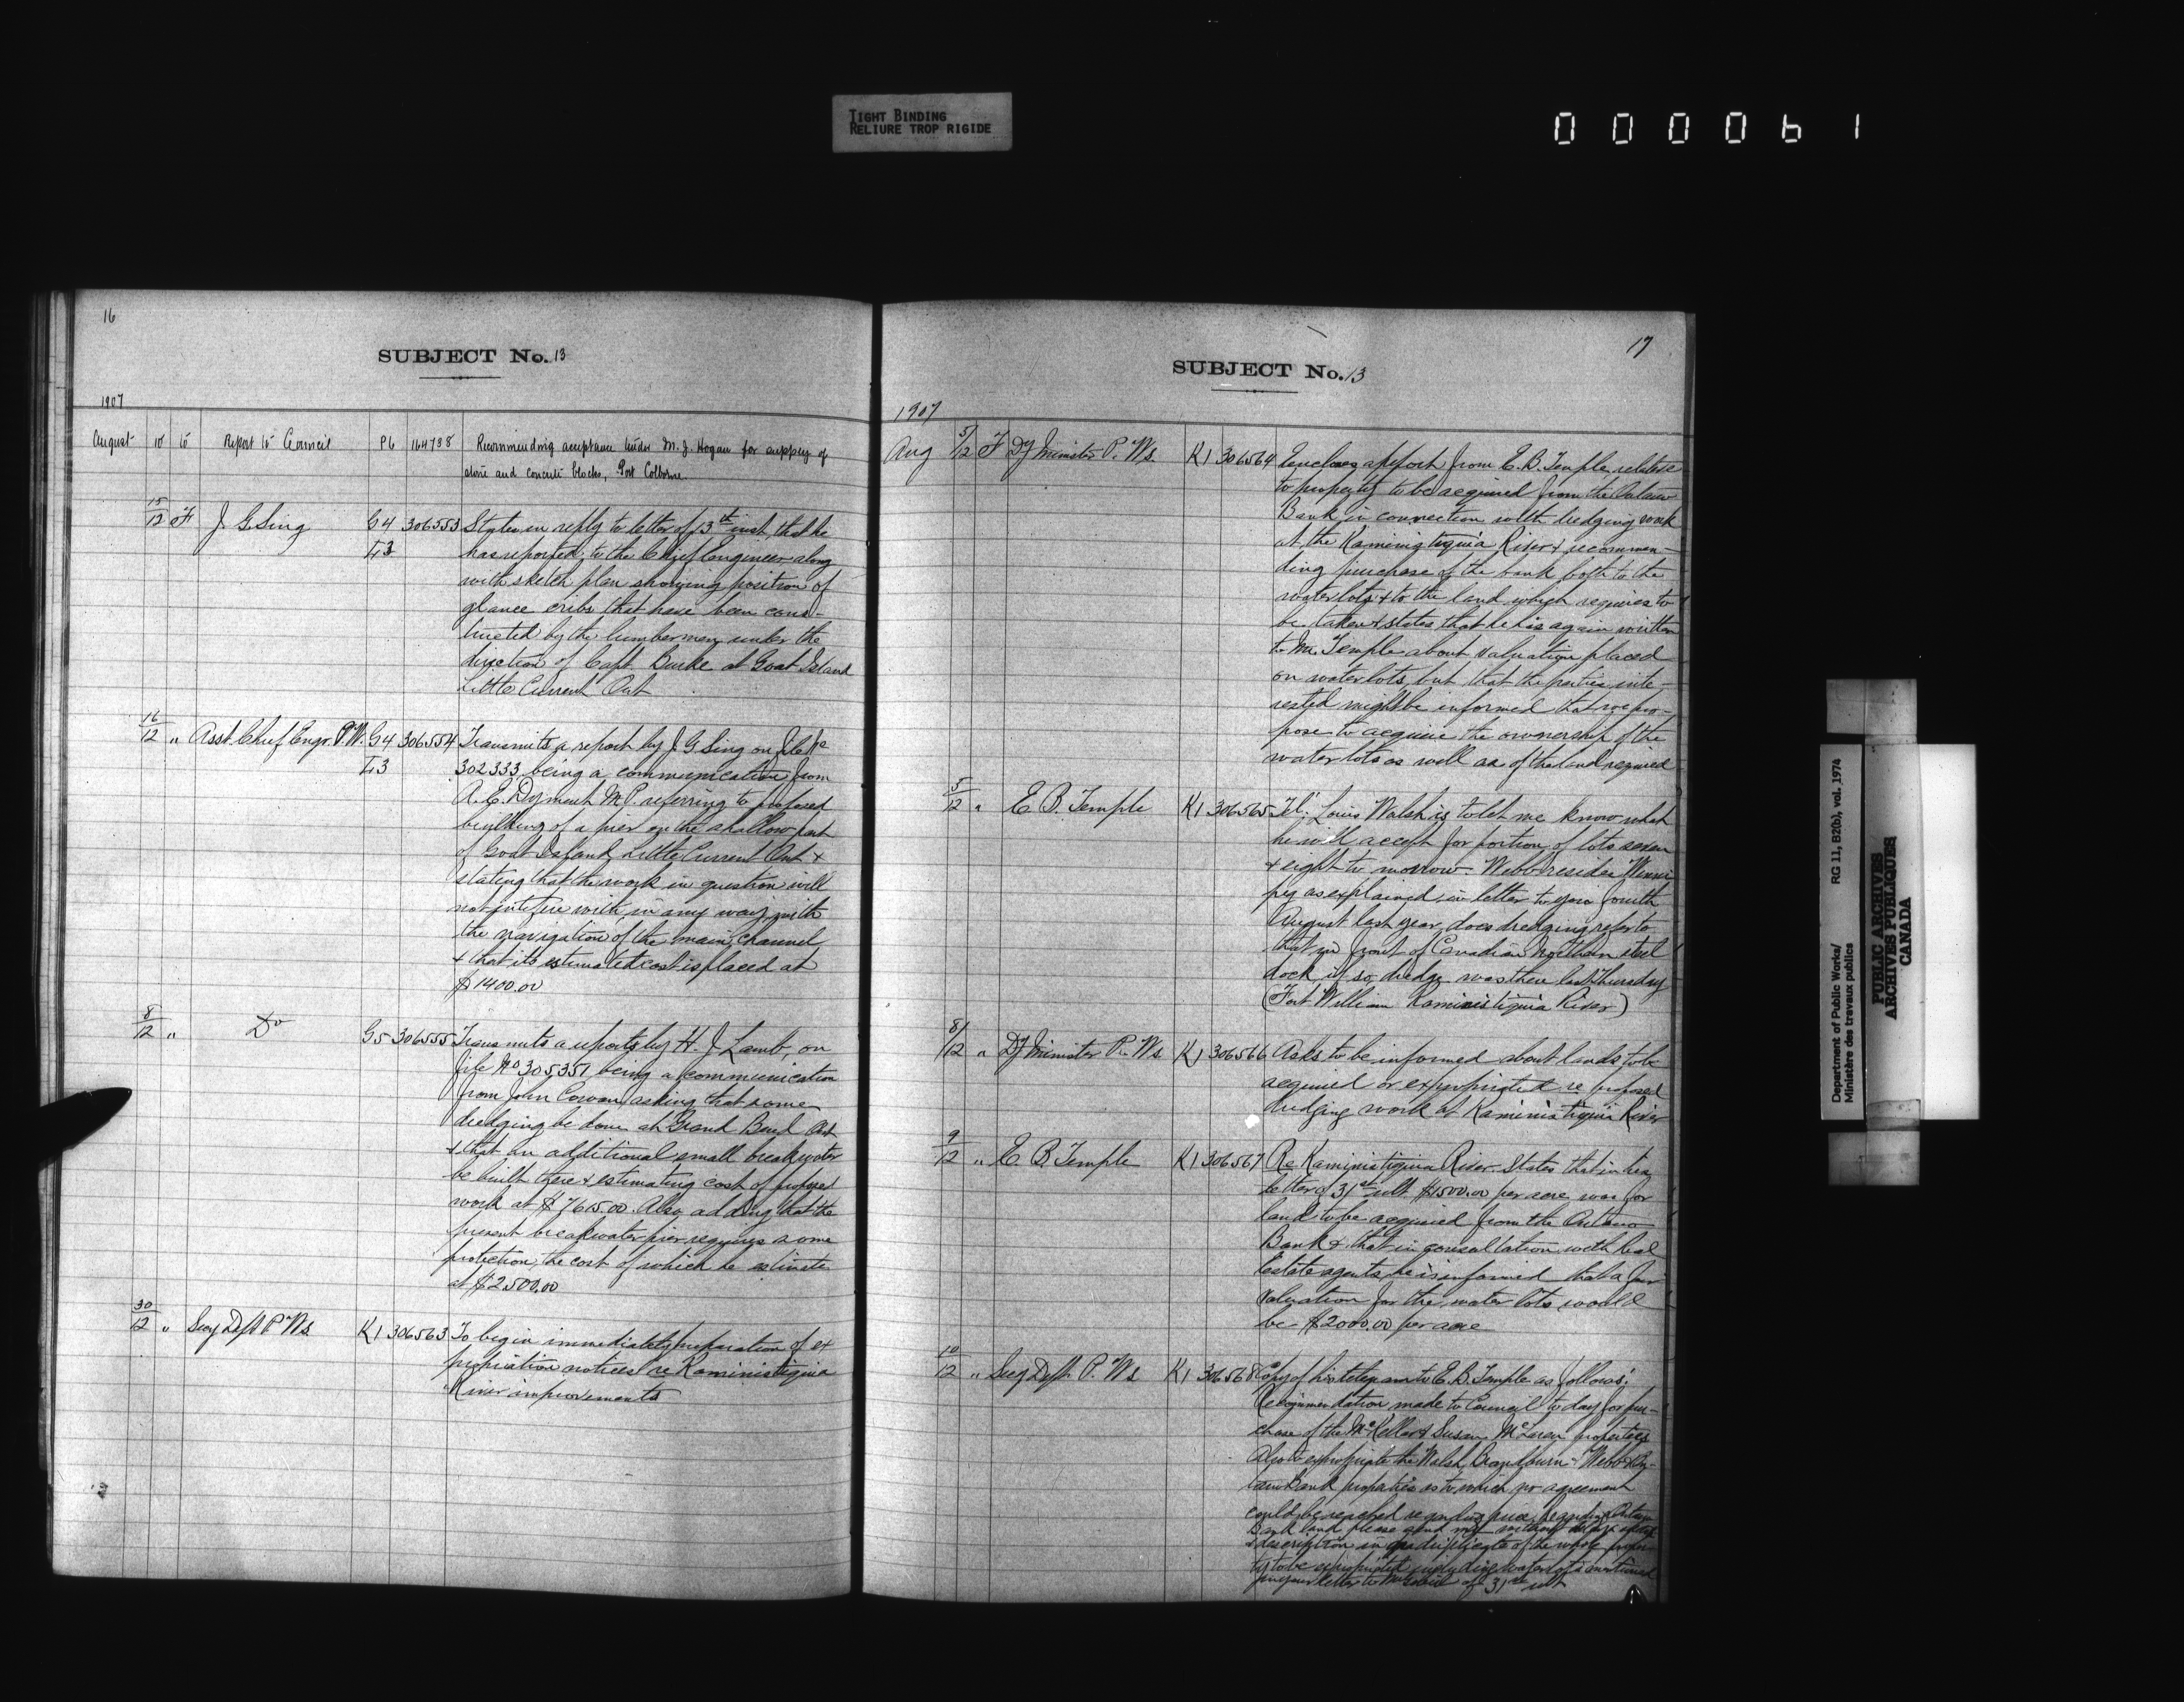 TIGHT BINDING
RELIURE TROP RIGIDE
000061
16
SUBJECT No. 13
1907
August 10 to Report to Council P6 164738 Recommending acceptance tender M. J. Hogan for supply of
stone and concrete blocks, Port Colborne.
15/12 F J. G. Sing G4 306553 States in reply to letter of 13th inst. that he
L3 has reported to the Chief Engineer along
with sketch plan showing position of
glance cribs that have been cons-
tructed by the lumbermen under the
direction of Capt. Burke at Goat Island
Little Current Ont
16/12 " Asst. Chief Engr. P.W. G4 306554 Transmits a report by J. G. Sing on file No
L3 302333 being a communication from
A. E. Dyment M.P. referring to proposed
building of a pier on the shallow part
of Goat Island, Little Current Ont &
stating that the work in question will
not interfere with in any way with
the navigation of the main channel
& that its estimated cost is placed at
$1400.00
8/12 " Do G5 306555 Transmits a report by H. J. Lamb, on
file No 305351 being a communication
from John Cowan asking that some
dredging be done at Grand Bend Ont
& that an additional small breakwater
be built there & estimating cost of proposed
work at $7615.00. Also adding that the
present breakwater pier requires some
protection, the cost of which he estimates
at $2500.00
30/12 " Secy Dept P.Ws. K1 306563 To begin immediately preparation of ex
propriation notices re Kaministiquia
River improvements
17
SUBJECT No. 13
1907
Aug 5/12 F Dy Minister P. Ws. K1 306564 Encloses a report from E. B. Temple relative
to property to be acquired from the Ontario
Bank in connection with dredging work
at the Kaministiquia River & recommen-
ding purchase of the bank both to the
water lots & to the land which requires to
be taken & states that he has again written
to Mr. Temple about valuation placed
on water lots, but that the parties inte-
rested might be informed that we pro-
pose to acquire the ownership of the
water lots as well as of the land required
5/12 " E. B. Temple K1 306565 Tel: Louis Walsh is to let me know what
he will accept for portion of lots seven
& eight to morrow - Webb resides Winni
peg as explained in letter to you fourth
August last year, does dredging refer to
that in front of Canadian Northern steel
dock if so, dredge was there last Thursday
(Fort William Kaministiquia River)
8/12 " Dy Minister P. Ws. K1 306566 Asks to be informed about lands to be
acquired or expropriated re proposed
dredging work at Kaministiquia River
9/12 " E. B. Temple K1 306567 Re Kaministiquia River. States that in his
letter of 31st ult $1500.00 per acre was for
land to be acquired from the Ontario
Bank & that in consultation with Real
Estate agents, he is informed that a fair
valuation for the water lots would
be $2000.00 per acre
10/12 " Secy Dept. P. Ws K1 306568 Copy of his telegram to E. B. Temple as follows:
Recommendation made to Council to day for pur-
chase of the McKellar & Susan McLaren properties
Also to expropriate the Walsh, Webb & On-
tario Bank properties as to which no agreement
could be reached regarding price. Regarding Ontario
Bank land please send me without delay
description in quadruplicate of the whole proper
ty to be expropriated including water lots mentioned
in your letter to of 31st ult
Department of Public Works/ RG 11, B2(b), vol. 1974
Ministère des travaux publics
PUBLIC ARCHIVES
ARCHIVES PUBLIQUES
CANADA